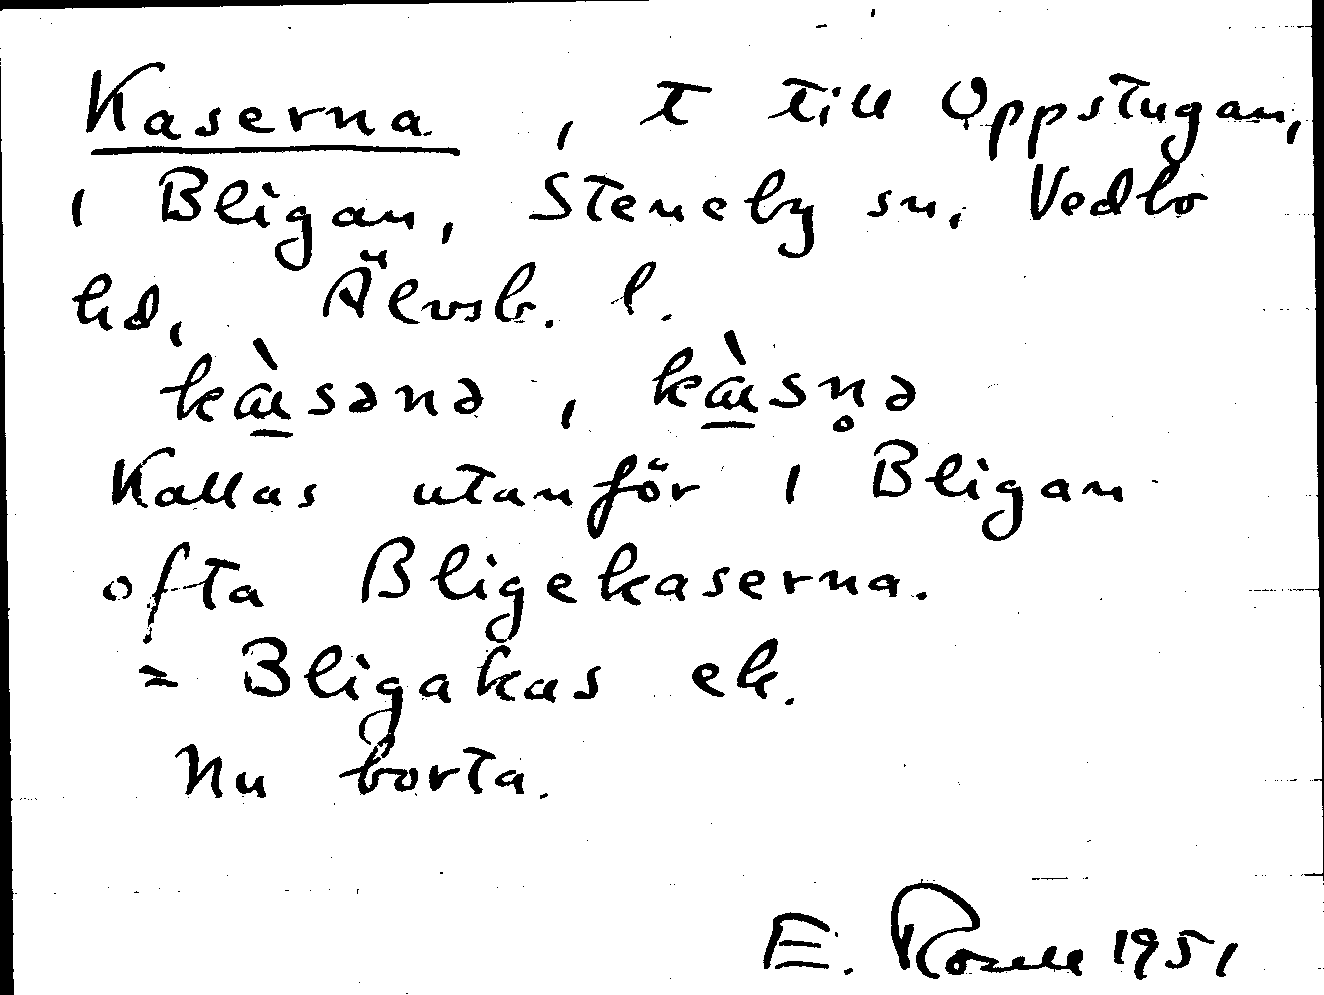 Kaserna, t till Uppstugan,
i Bligan, Steneby sn, Vedbo
hd, Älvsb. l.
kàsənə, kàsn̥ə
Kallas utanför i Bligan
ofta Bligekaserna.
= Bligakas ek.
Nu borta.
E. Rosell 1951